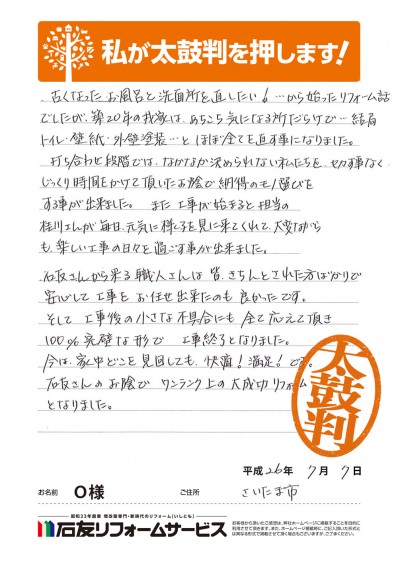 私が太鼓判を押します!
古くなったお風呂と洗面所を直したい!…から始ったリフォーム話
でしたが、築20年の我家は、あちこち気になる所だらけで…結局
トイレ・壁紙・外壁塗装…とほぼ全てを直す事になりました。
打ち合わせ段階では、なかなか決められない私たちを、せかす事なく
じっくり時間をかけて頂いたお陰で納得のモノ選びを
する事が出来ました。また工事が始まると担当の
桂川さんが毎日、元気に様子を見に来てくれて、大変ながら
も、楽しい工事の日々を過ごす事が出来ました。
石友さんから来る職人さんは皆、きちんとされた方ばかりで
安心して工事をお任せ出来たのも良かったです。
そして工事後の小さな不具合にも全て応えて頂き
100%完璧な形で工事終了となりました。
今は、家中どこを見回しても、快適!満足!です。
石友さんのお陰でワンランク上の大成功リフォーム
となりました。
太鼓判
平成26年 7月 7日
お名前 O様 ご住所 さいたま市
昭和23年創業 増改築専門・新時代のリフォーム(いしとも)
石友リフォームサービス
お客様から頂いたご感想は、弊社ホームページに掲載することを目的に
利用させて頂きます。また、ホームページ掲載時に、ご記入頂いた形式と
は異なる形式で掲載させて頂く場合もございますが、ご了承ください。